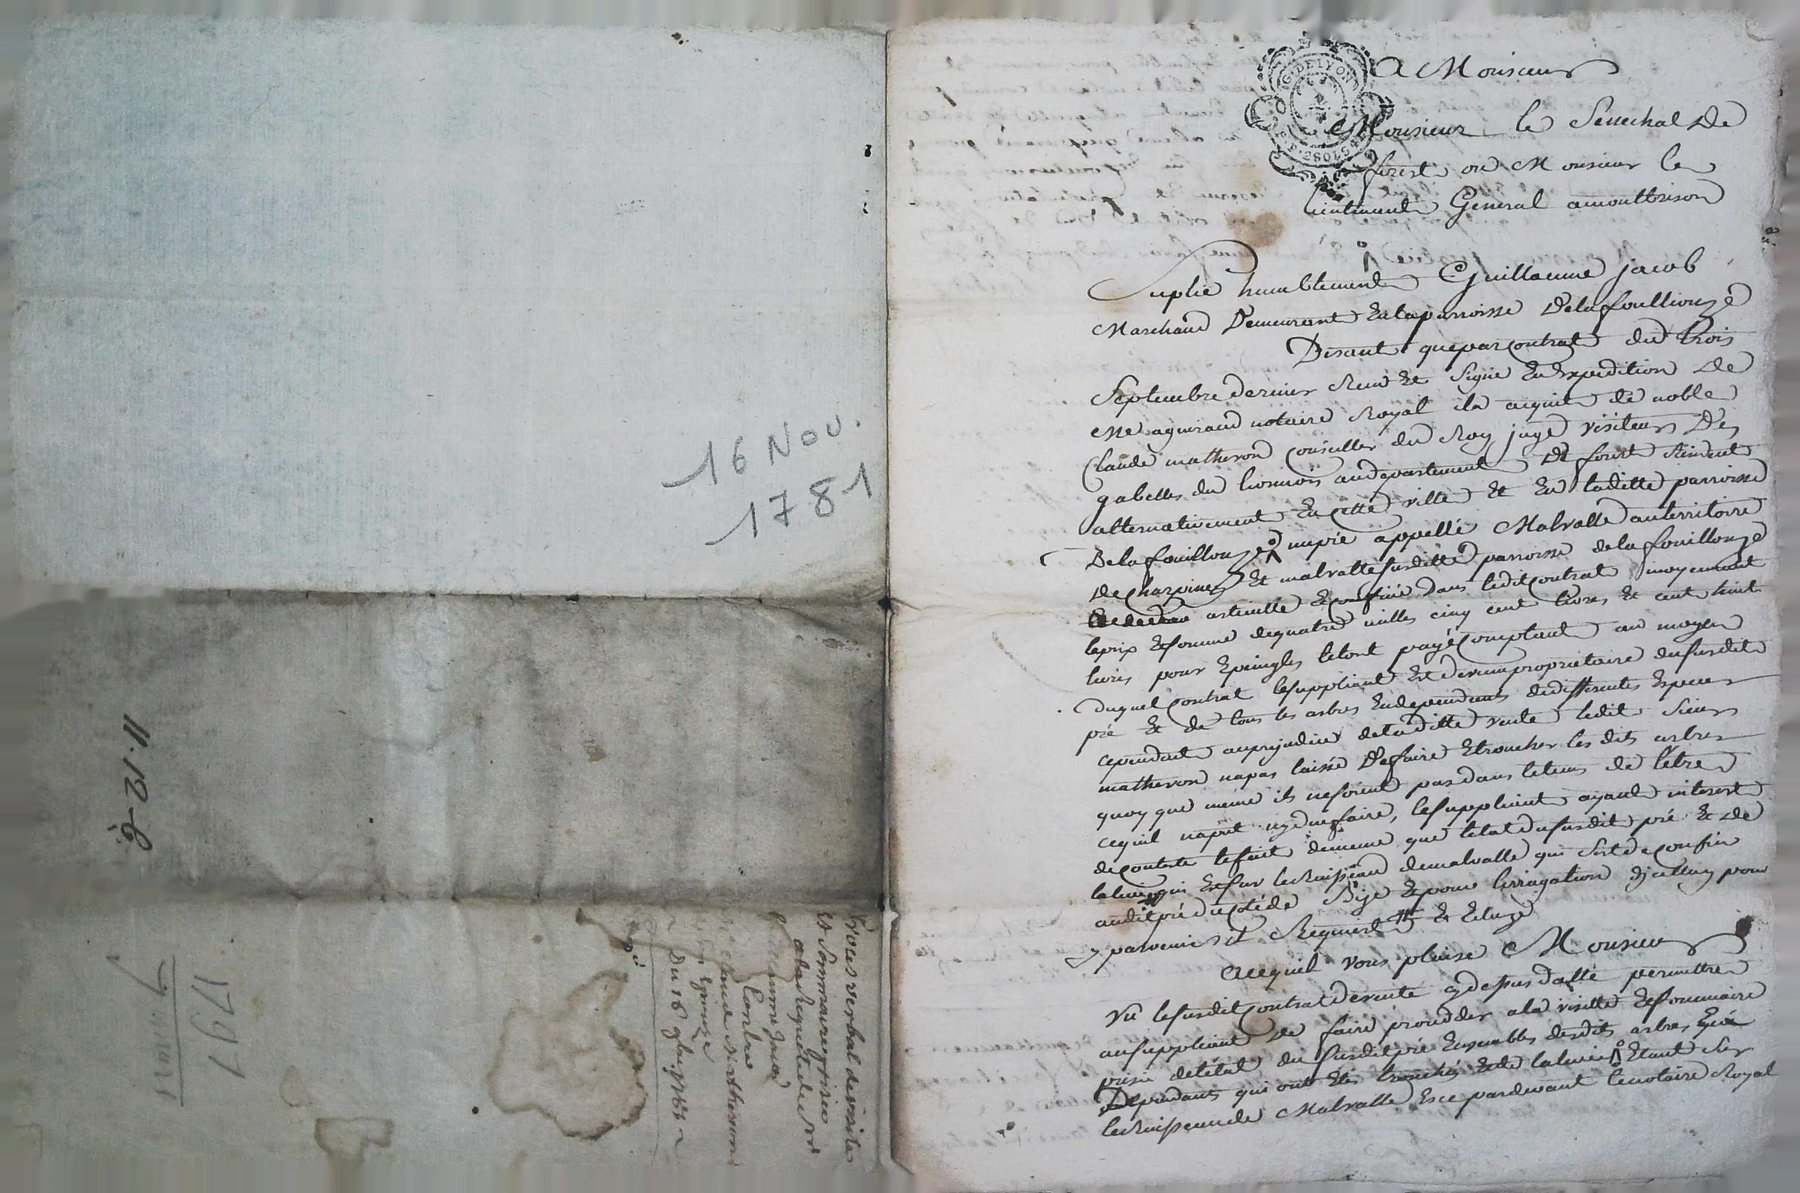 16 Nov.
1781
11-12-6
1797
9
Procès verbal de visite
et sommaire prisée
a la Requete de Sr
Guillaume Jacob
Contre
Claude Matheron
Du 16 9bre 1781
G. DE LYON
2 SOLS 4 D
A Monsieur
Monsieur le Senechal De
forest ou Monsieur le
Lieutenant General a montbrison
Suplie humblement Guillaume Jacob
Marchand Demeurant En la parroisse De la fouillouze
Disant que par Contrat du trois
Septembre dernier Reçu Et Signé En Expedition De
Me notaire Royal il a acquit de noble
Claude matheron Conseiller du Roy juge visiteur Des
gabelles du lionnois au departement De forest Resident
alternativement En cette ville Et En laditte parroisse
De la fouillouze un pré appellé Malvalle au territoire
De Charpiney Et malvalle susditte parroisse de la fouillouze
articullé Et confiné dans ledit Contrat moyennant
le prix Et somme de quatre milles cinq cent livres Et cent huit
livres pour Epingles le tout payé Comptant au moyen
Duquel Contrat le suppliant Est devenu proprietaire du susdit
pré Et de tous les arbres En dependants de differentes Especes
cependant au prejudice de la ditte vente ledit Sieur
matheron na pas laissé De faire Etroncher les dits arbres
quoy que meme ils ne soient pas dans le tems de l'être
ce quil na put ny du faire, le suppliant ayant interest
de Constater le fait de meme que l'état du susdit pré Et de
qui Est sur le Ruisseau de malvalle qui Sert de confin
au dit pré du Coté de Bize Et pour lirrigation d'icelluy pour
y parvenir il Requiert
Ace quil vous plaise Monsieur
Vû le susdit Contrat de vente cy dessus datté permettre
au suppliant De faire proceder a la visitte Et sommaire
prisée de l'état du susdit pré Ensembles desdits arbres
Dependants qui ont Eté tronchés Et de Etant Sur
le Ruisseau de Malvalle Et ce par devant le notaire Royal